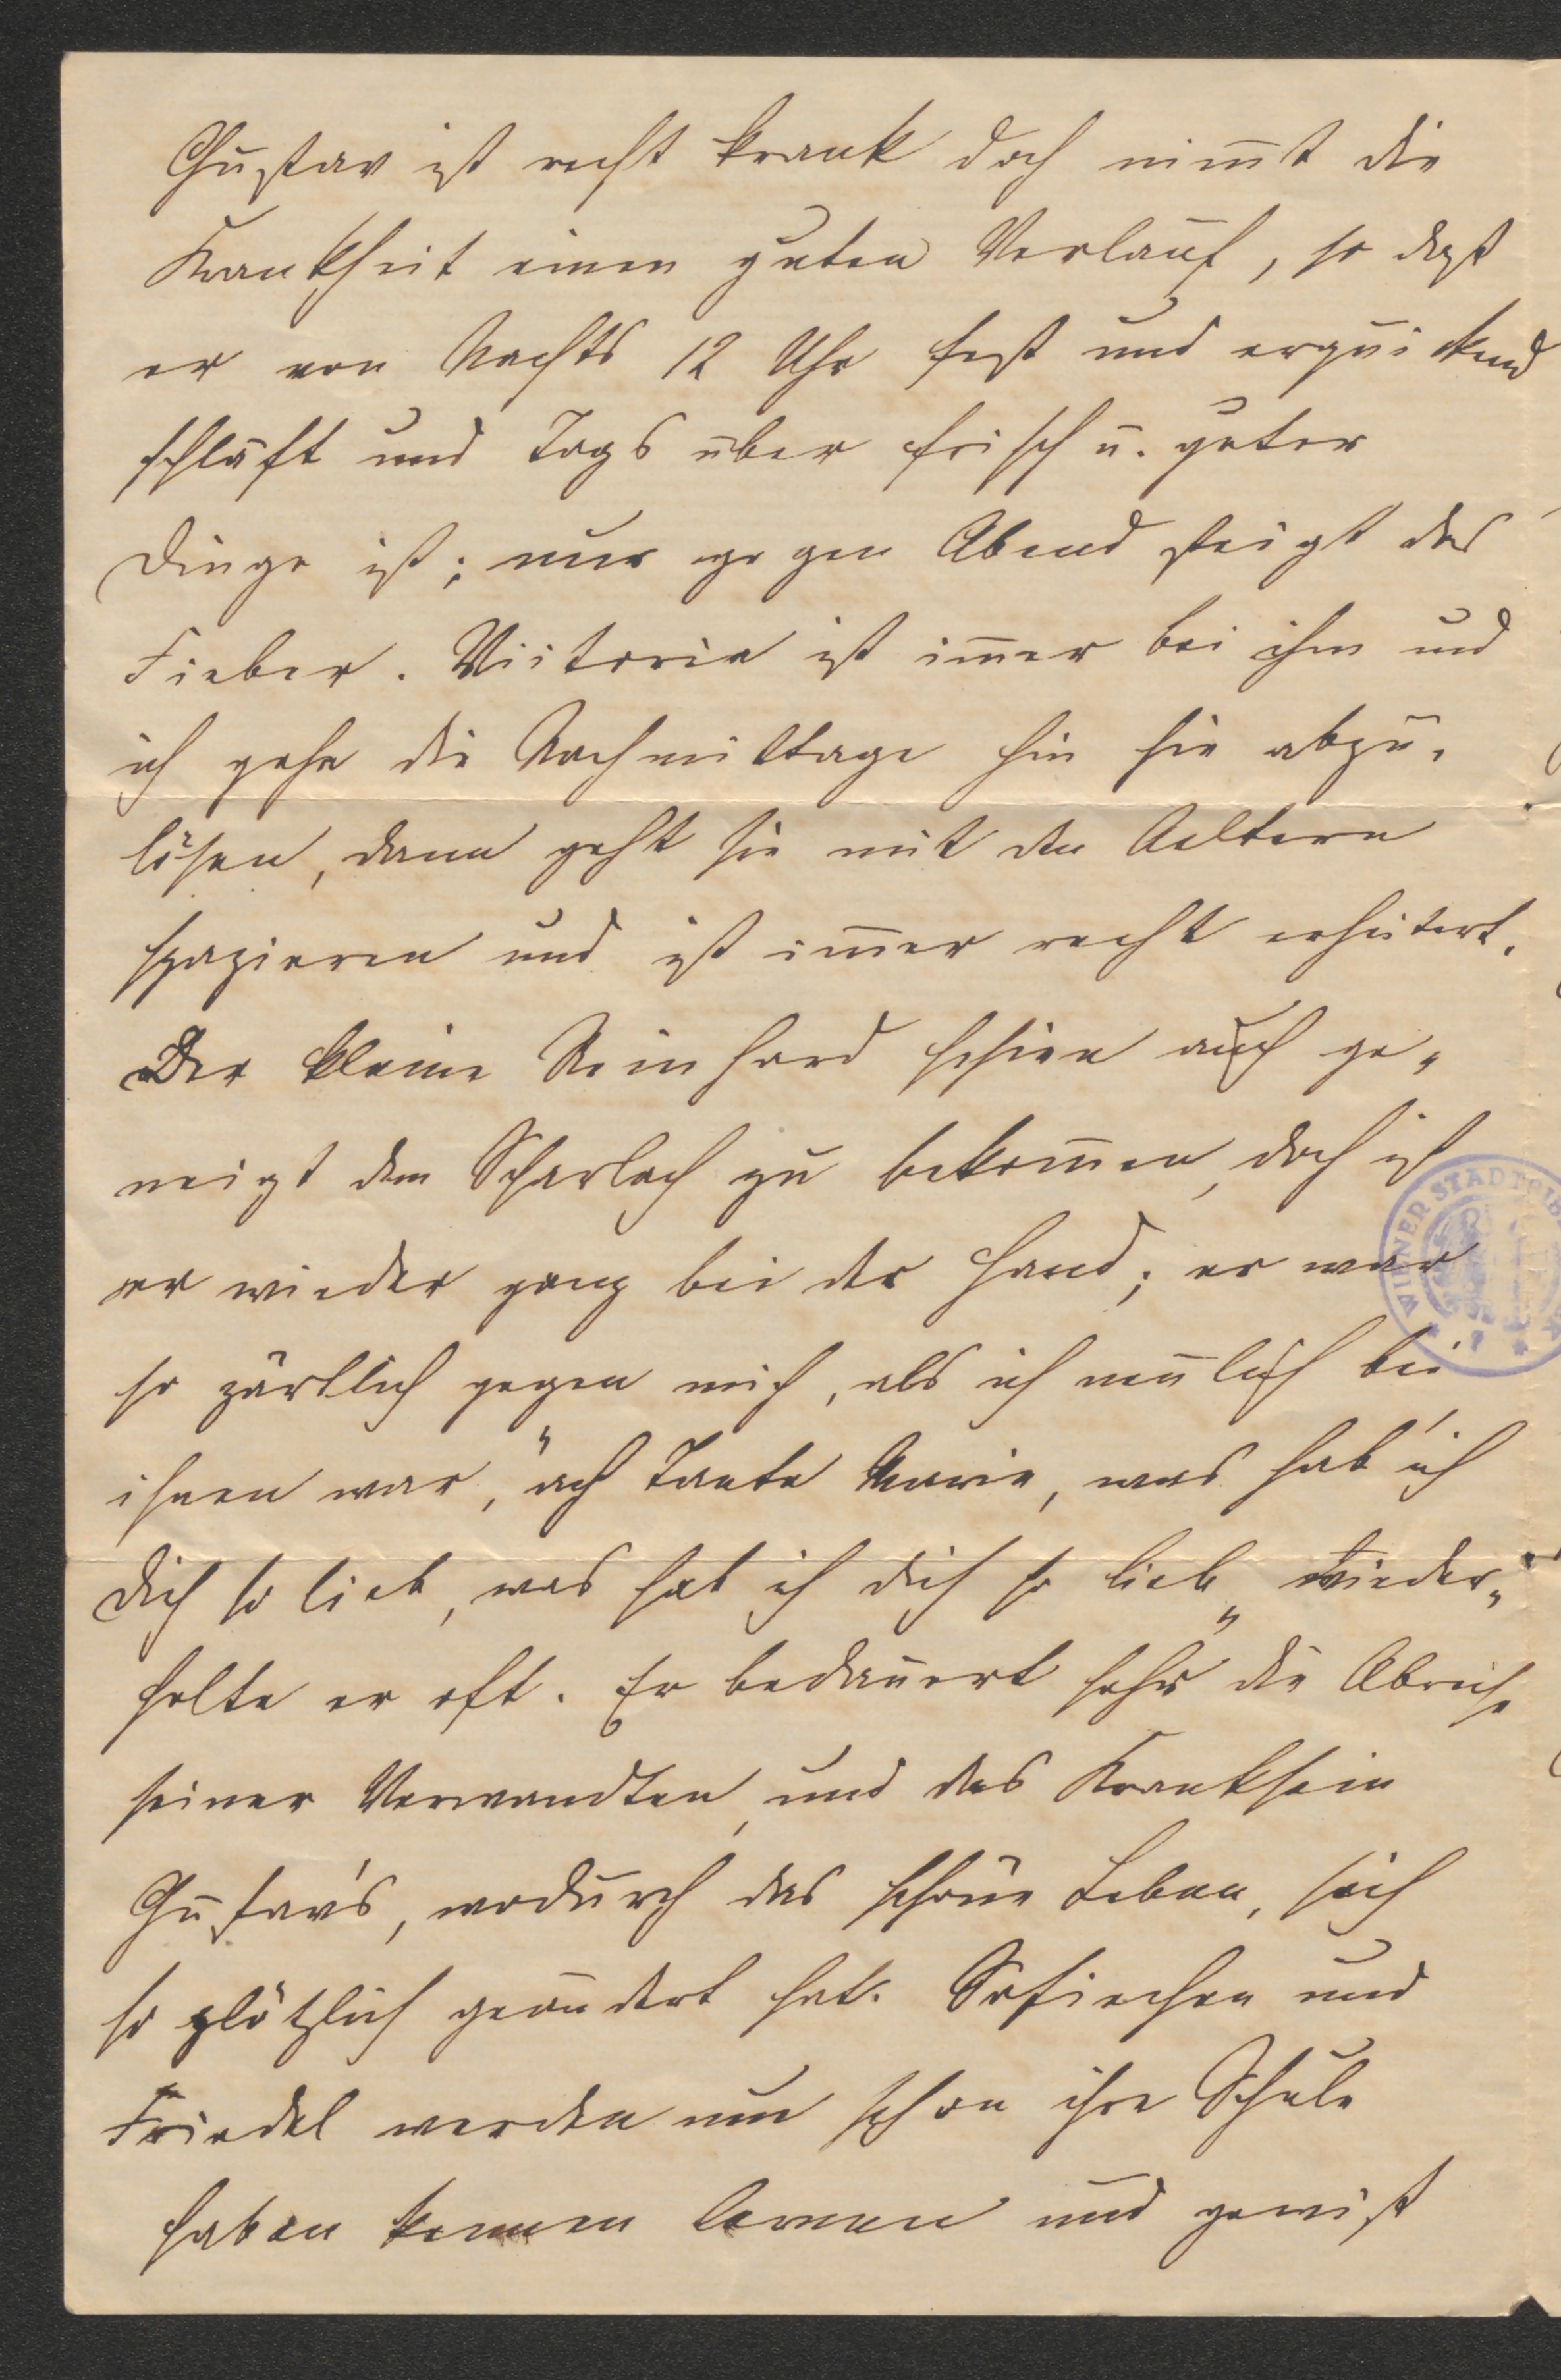 Gustav ist recht krank doch nim̄t die
Krankheit einen guten Verlauf, so daß
er von Nachts 12 Uhr fest und erquickend
schläft und Tags über frisch u. guter
Dinge ist; nur gegen Abend steigt das
Fieber. Victorie ist im̄er bei ihm und
ich gehe die Nachmittage hin sie abzu-
lösen, dann geht sie mit den Aeltern
spazieren und ist im̄er recht erheitert.
Der kleine Reinhard schien auch ge-
neigt den Scharlach zu bekom̄en, doch ist
er wieder ganz bei der Hand; er war
so zärtlich gegen mich, als ich neulich bei
ihnen war, "ach Tante Marie, was hab' ich
dich so lieb, was hab ich dich so lieb" wieder-
holte er oft. Er bedauert sehr die Abreise
seiner Verwandten, und das Kranksein
Gustav's, wodurch das schöne Leben, sich
so plötzlich geändert hat. Sofiechen und
Friedel werden nun schon ihre Schule
haben kennen lernen und gewiß
WIENER STADTBIB